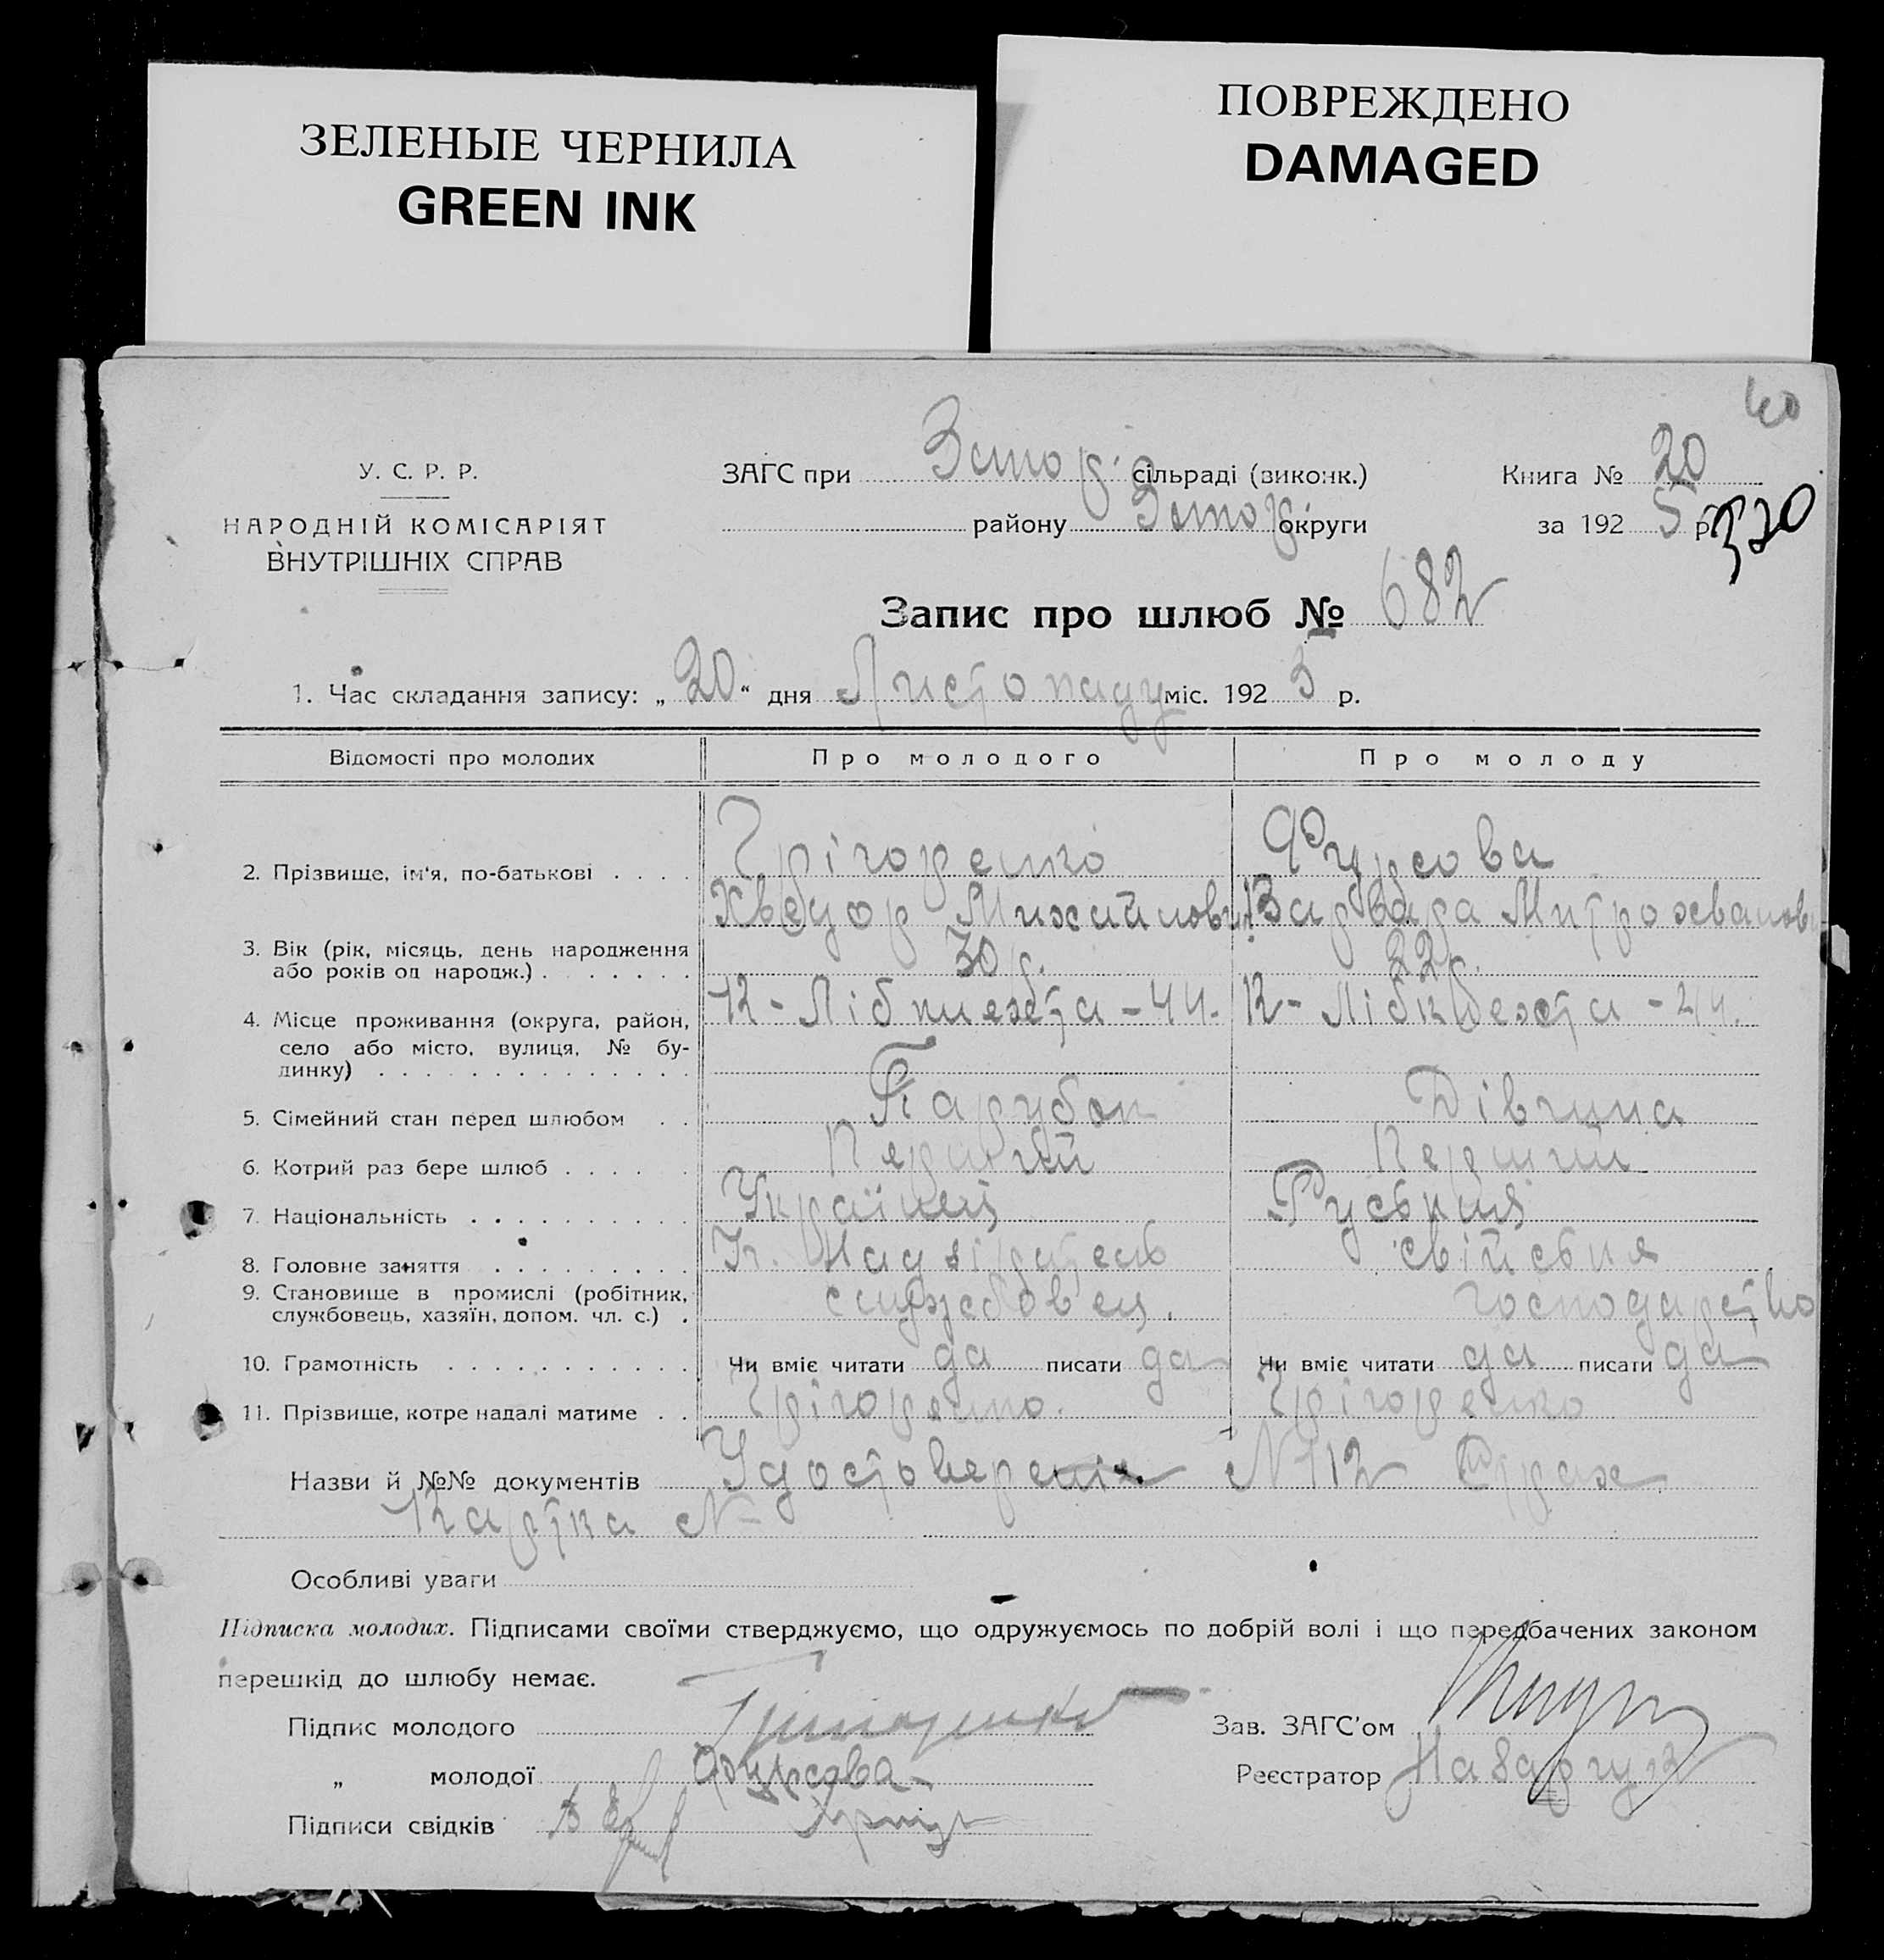 ЗЕЛЕНЫЕ ЧЕРНИЛА
GREEN INK
ПОВРЕЖДЕНО
DAMAGED
40
У. С. Р. Р.
НАРОДНІЙ КОМІСАРІЯТ
ВНУТРІШНІХ СПРАВ
ЗАГС при Запор. сільраді (виконк.)
району Запор. округи
Книга № 20
за 192 5 р.
320
Запис про шлюб № 682
1. Час складання запису: „ 20 “ дня Листопаду міс. 192 5 р.
Відомості про молодих Про молодого Про молоду
2. Прізвище, ім'я, по-батькові . . . . Грігоренко Фурсова
Хведор Михайлович Варвара Митрохванов
3. Вік (рік, місяць, день народження
або років од народж.) . . . . . . . 30 р. 22 р.
4. Місце проживання (округа, район,
село або місто, вулиця, № бу-
динку) . . . . . . . . . . . . . .
К - Лібкнехта - 44. К - Лібкнехта - 44.
5. Сімейний стан перед шлюбом . . Парубок Дівчина
6. Котрий раз бере шлюб . . . . . Перший Перший
7. Національність . . . . . . . . . . Українец Руськая
8. Головне заняття . . . . . . . . . Надзіратель свійське
9. Становище в промислі (робітник,
службовець, хазяїн, допом. чл. с.) . службовец. господарство
10. Грамотність . . . . . . . . . . . Чи вміє читати да писати да Чи вміє читати да писати да
11. Прізвище, котре надалі матиме . . Грігоренко. Грігоренко
Назви й №№ документів Удостоверенія N 112
Картка N -
Особливі уваги
Підписка молодих. Підписами своїми стверджуємо, що одружуємось по добрій волі і що передбачених законом
перешкід до шлюбу немає.
Підпис молодого Грігоренко
„ молодої Фурсова
Підписи свідків
Зав. ЗАГС'ом
Реєстратор